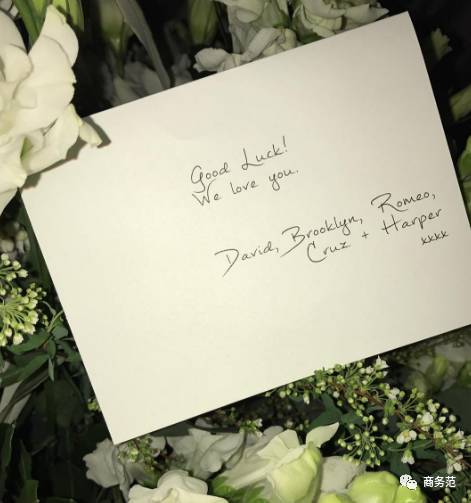 Good Luck!
We love you.
David, Brooklyn, Romeo,
Cruz + Harper
xxxx
商务范